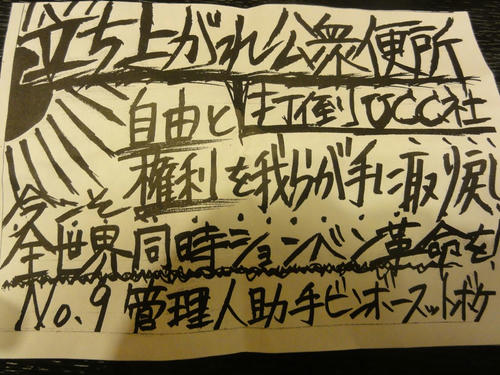 立ち上がれ公衆便所
打倒UCC社
自由と
権利を我らが手に取り戻し
今こそ
全世界同時ションベン革命を
No.9 管理人助手ビンボースットボケ